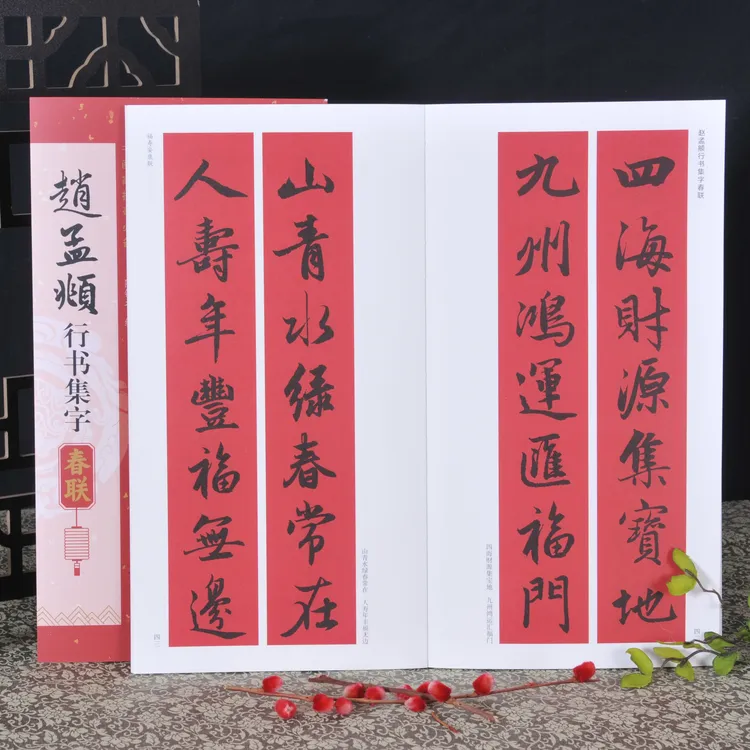 趙孟頫
行书集字
春联
赵孟頫行书集字春联
四海財源集寶地
九州鴻運匯福門
四海财源集宝地 九州鸿运汇福门
山青水绿春常在
人壽年豐福無邊
山青水绿春常在 人寿年丰福无边
福寿安康联
四三